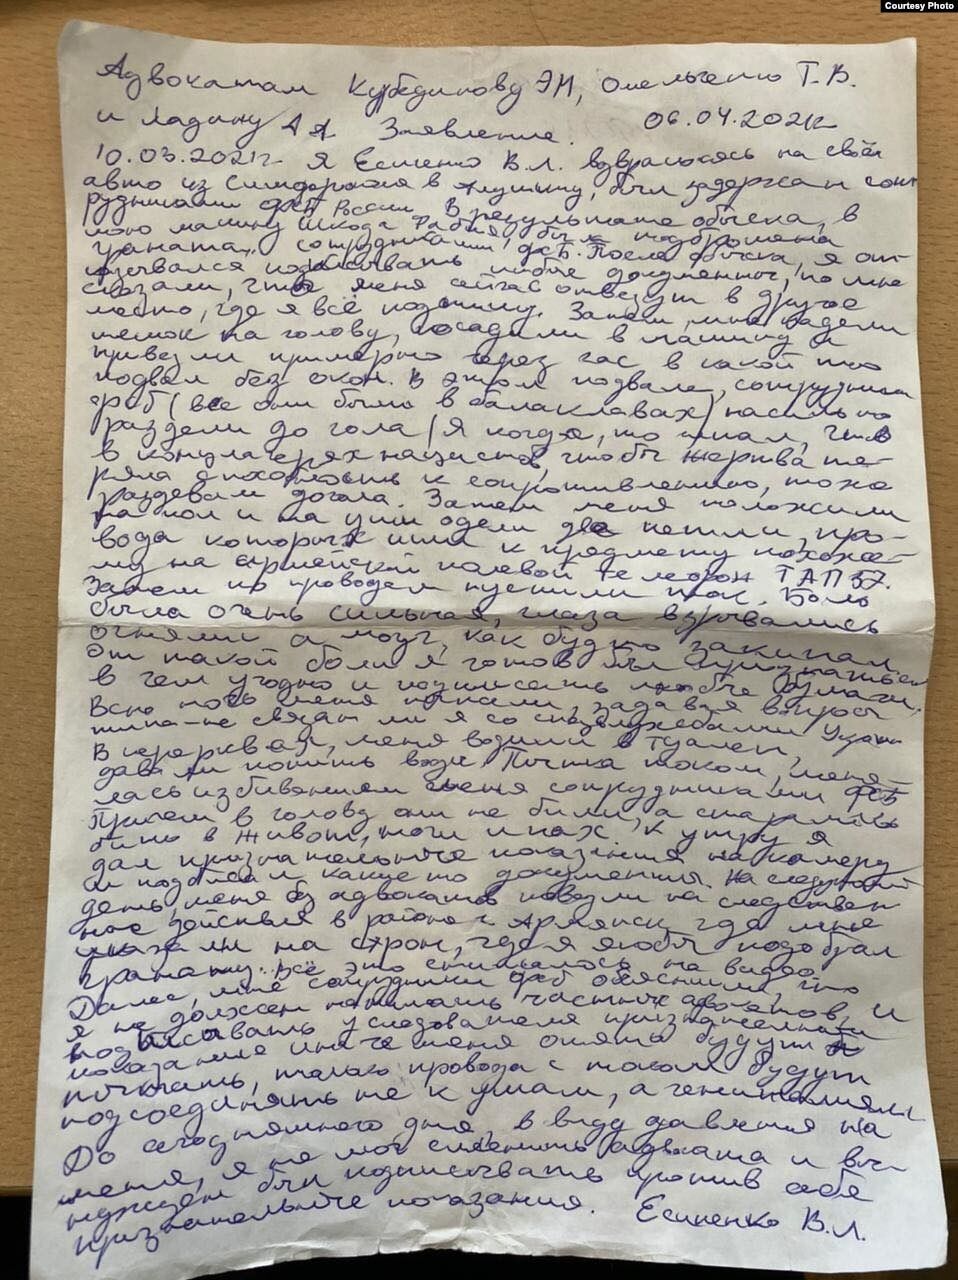 Courtesy Photo
Адвокатам Курбединову Э.М, Омельченко Т.В.
и Ладину А Я Заявление. 06.04.2021г
10.03.2021г. я Есипенко В.Л. возвращаясь на своём
авто из Симферополя в Алушту, был задержан сот
рудниками ФСБ России. В результате обыска, в
мою машину Шкода Фабия, была подброшена
граната, сотрудниками ФСБ. После обыска, я от
казывался подписывать любые документы, но мне
сказали, что меня сейчас отвезут в другое
место, где я всё подпишу. Затем, мне надели
мешок на голову, посадили в машину и
привезли примерно через час в какой то
подвал без окон. В этом подвале, сотрудники
ФСБ (все они были в балаклавах) насильно
раздели до гола (я когда, то читал, что
в концлагерях нацистов, чтобы жертва те-
ряла способность к сопротивлению, тоже
раздевали догола. Затем меня положили
на пол и на уши одели две петли, про-
вода которых шли к предмету похоже-
му на армейский полевой телефон ТАП 57.
Затем по проводам пустили ток. Боль
была очень сильная, глаза взрывались
огнями а мозг, как будто закипал
От такой боли я готов был признаться
в чем угодно и подписать любые бумаги.
Всю ночь меня пытали, задавая вопросы
типа-не связан ли я со спецслужбами Украи
В перерывах, меня водили в туалет,
давали попить воды. Пытка током, меня-
лась избиванием меня сотрудниками ФСБ
Причем в голову они не били, а старались
бить в живот, ноги и пах. К утру я
дал признательные показания на камеру
и подписал какие то документы. На следующий
день, меня без адвокатов повезли на следствен
ные действия в районе г Армянск, где мне
указали на схрон, где я якобы подобрал
гранату. Всё это снималось на видео
Далее, мне сотрудники ФСБ объяснили, что
я не должен нанимать частных адвокатов, и
подписывать у следователя признательные
показание иначе меня опять будут
пытать, только провода с током будут
подсоединять не к ушам, а гениталиям
До сегодняшнего дня, в виду давления на
меня, я не мог сменить адвоката и вы-
нужден был подписывать против себя
признательные показания. Есипенко В.Л.